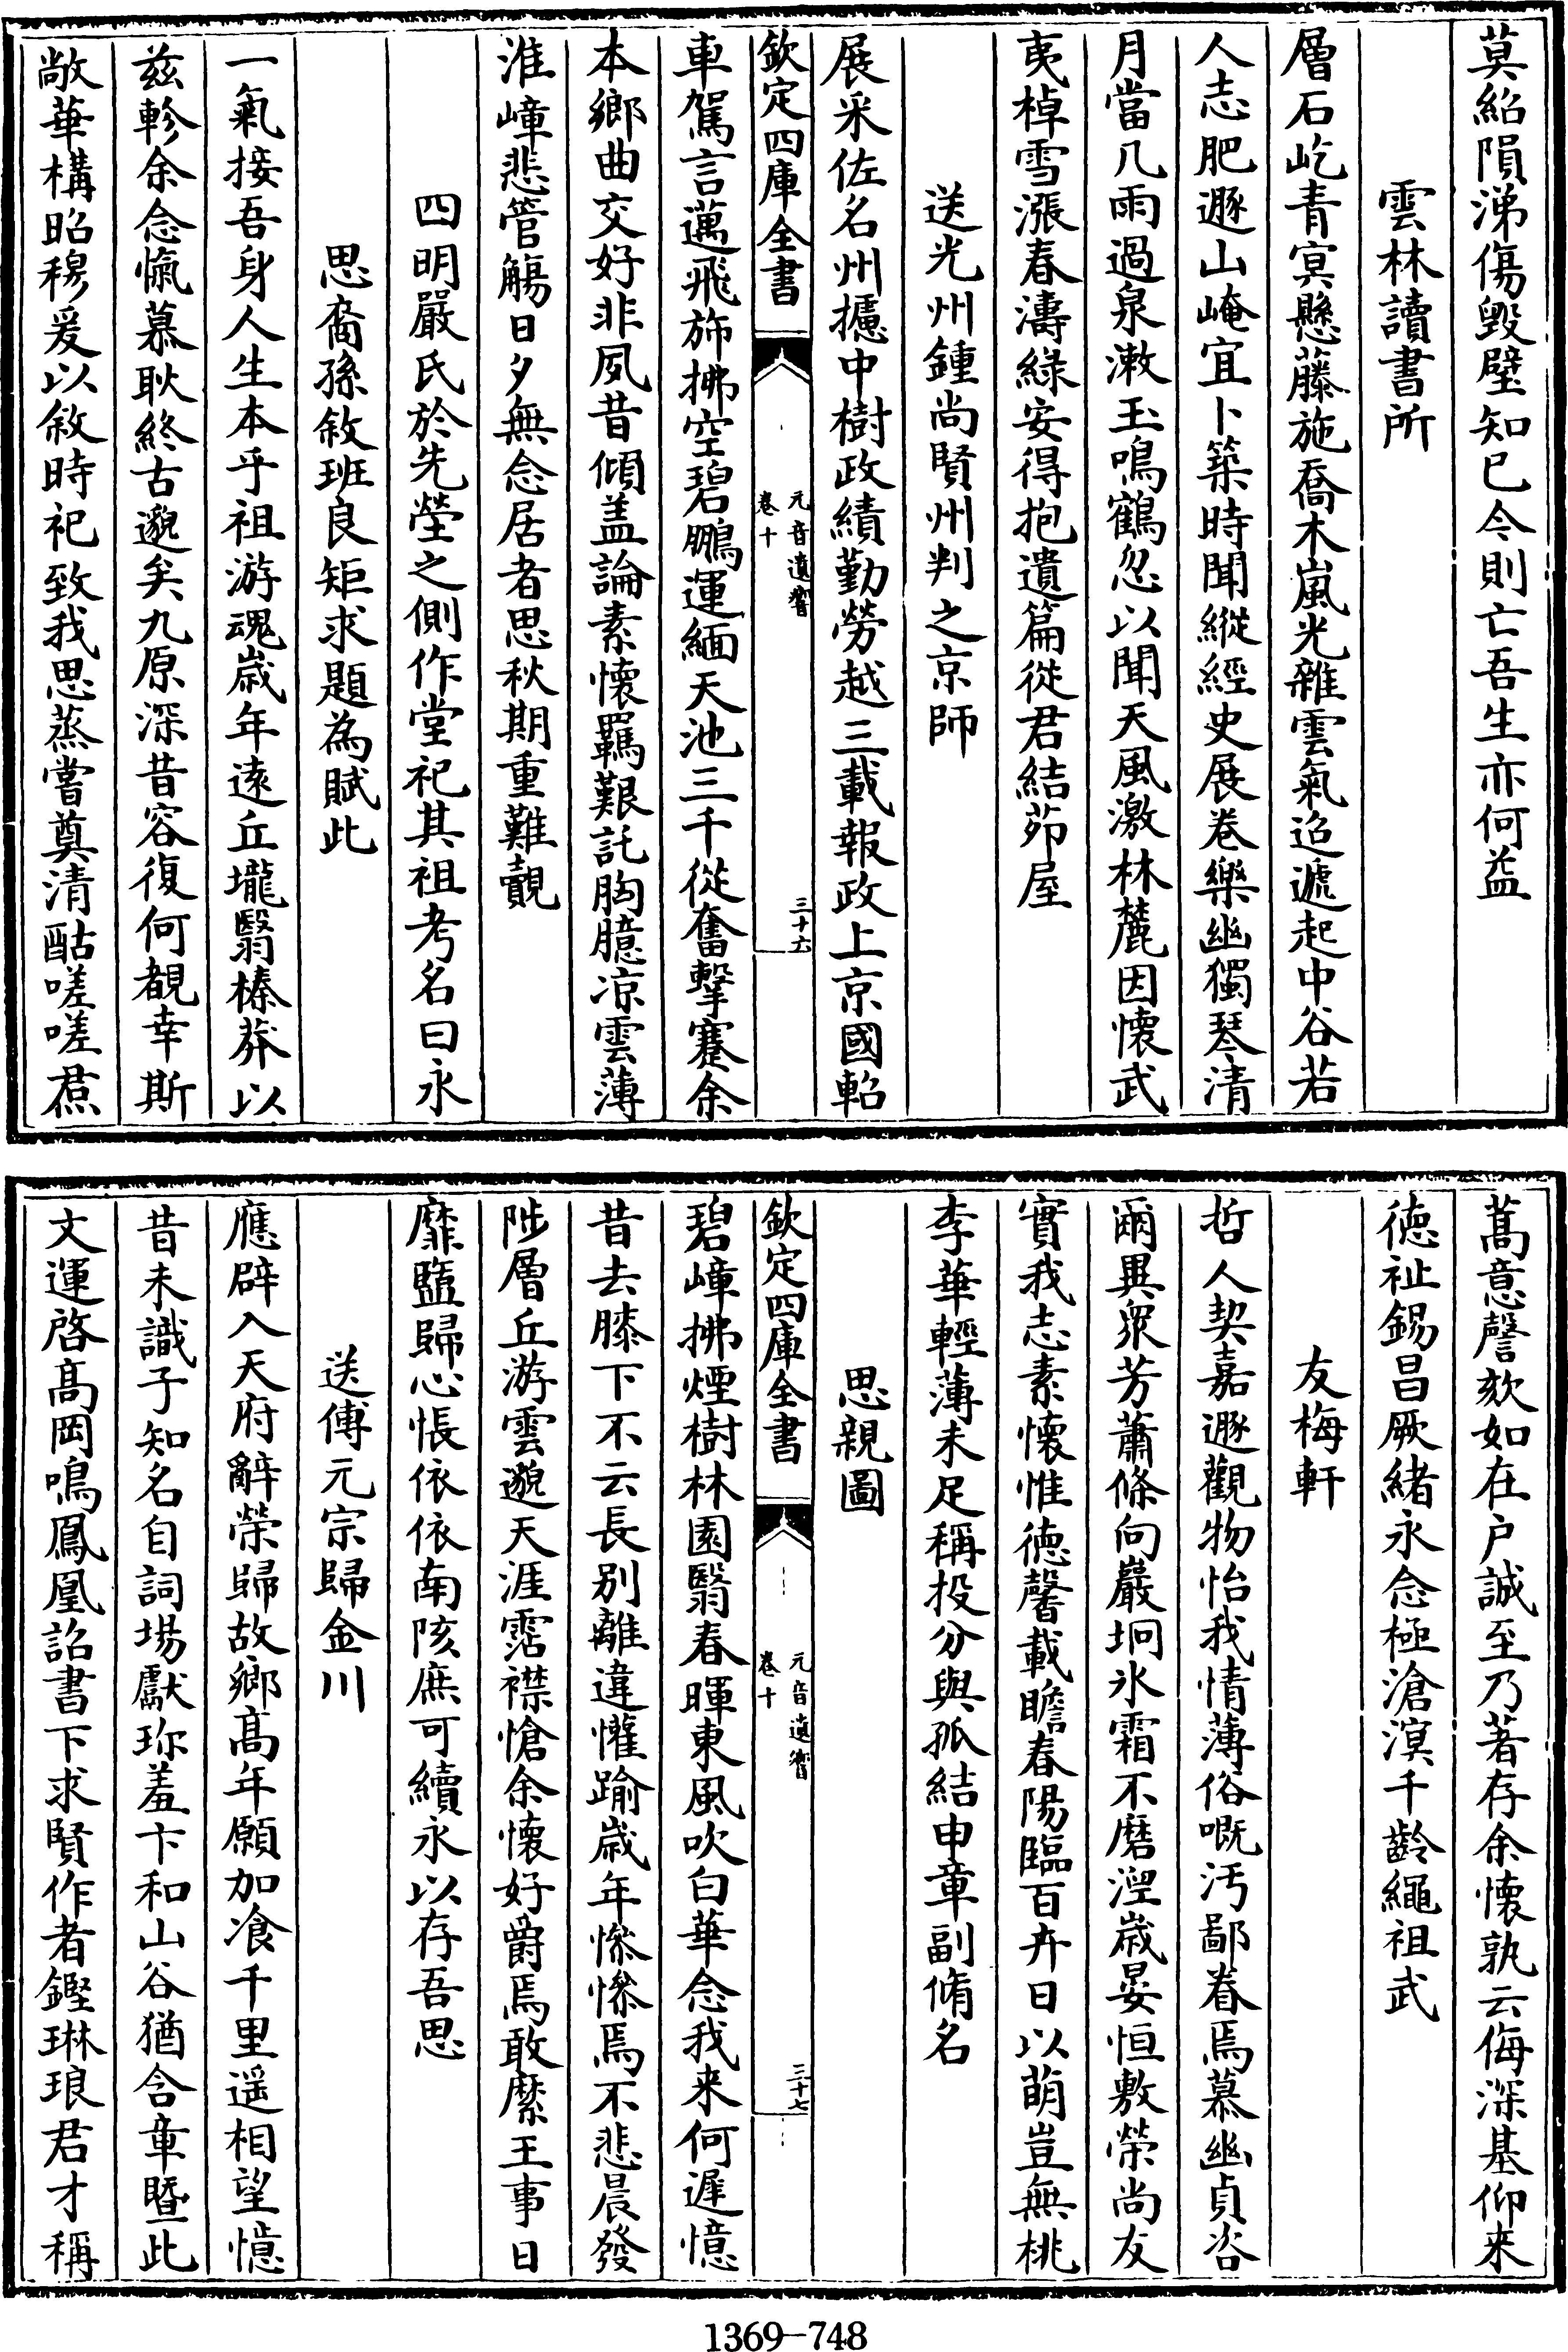 莫紹隕涕傷毀璧知已令則亡吾生亦何益
雲林讀書所
層石屹青冥懸藤施喬木嵐光雜雲氣迢遞起中谷若
人志肥遯山崦宜卜築時聞縱經史展卷樂幽獨琴清
月當几雨過泉漱玉鳴鶴忽以聞天風激林麓因懷武
夷棹雪漲春濤綠安得抱遺篇從君結茆屋
送光州鍾尚賢州判之京師
展采佐名州攄中樹政績勤勞越三載報政上京國軺
欽定四庫全書
元音遺響
卷十
三十六
車駕言邁飛斾拂空碧鵬運緬天池三千從奮擊蹇余
本鄉曲交好非夙昔傾蓋論素懷羈艱託胸臆凉雲薄
淮嶂悲管觴日夕無念居者思秋期重難覿
四明嚴氏於先塋之側作堂祀其祖考名曰永
思裔孫敘班良矩求題為賦此
一氣接吾身人生本乎祖游魂歲年遠丘壠翳榛莽以
兹軫余念愾慕耿終古邈矣九原深昔容復何覩幸斯
敞華構昭穆爰以敘時祀致我思蒸嘗奠清酤嗟嗟焄
蒿意謦欬如在户誠至乃著存余懷孰云侮深基仰来
德祉錫昌厥緒永念極滄溟千齡繩祖武
友梅軒
哲人契嘉遯觀物怡我情薄俗嘅汚鄙眷焉慕幽貞咨
爾異衆芳蕭條向巖坰氷霜不磨涅歲晏恒敷榮尚友
實我志素懷惟德馨載瞻春陽臨百卉日以萌豈無桃
李華輕薄未足稱投分與孤結申章副脩名
思親圖
欽定四庫全書
元音遺響
卷十
三十七
碧嶂拂煙樹林園翳春暉東風吹白華念我来何遲憶
昔去膝下不云長别離違懽踰歲年慘慘焉不悲晨發
陟層丘游雲邈天涯霑襟愴余懷好爵焉敢縻王事日
靡盬歸心悵依依南陔庶可續永以存吾思
送傅元宗歸金川
應辟入天府辭榮歸故鄉髙年願加飡千里遥相望憶
昔未識子知名自詞塲獻珎羞卞和山谷猶含章暨此
文運啓髙岡鳴鳳凰詔書下求賢作者鏗琳琅君才稱
1369—748